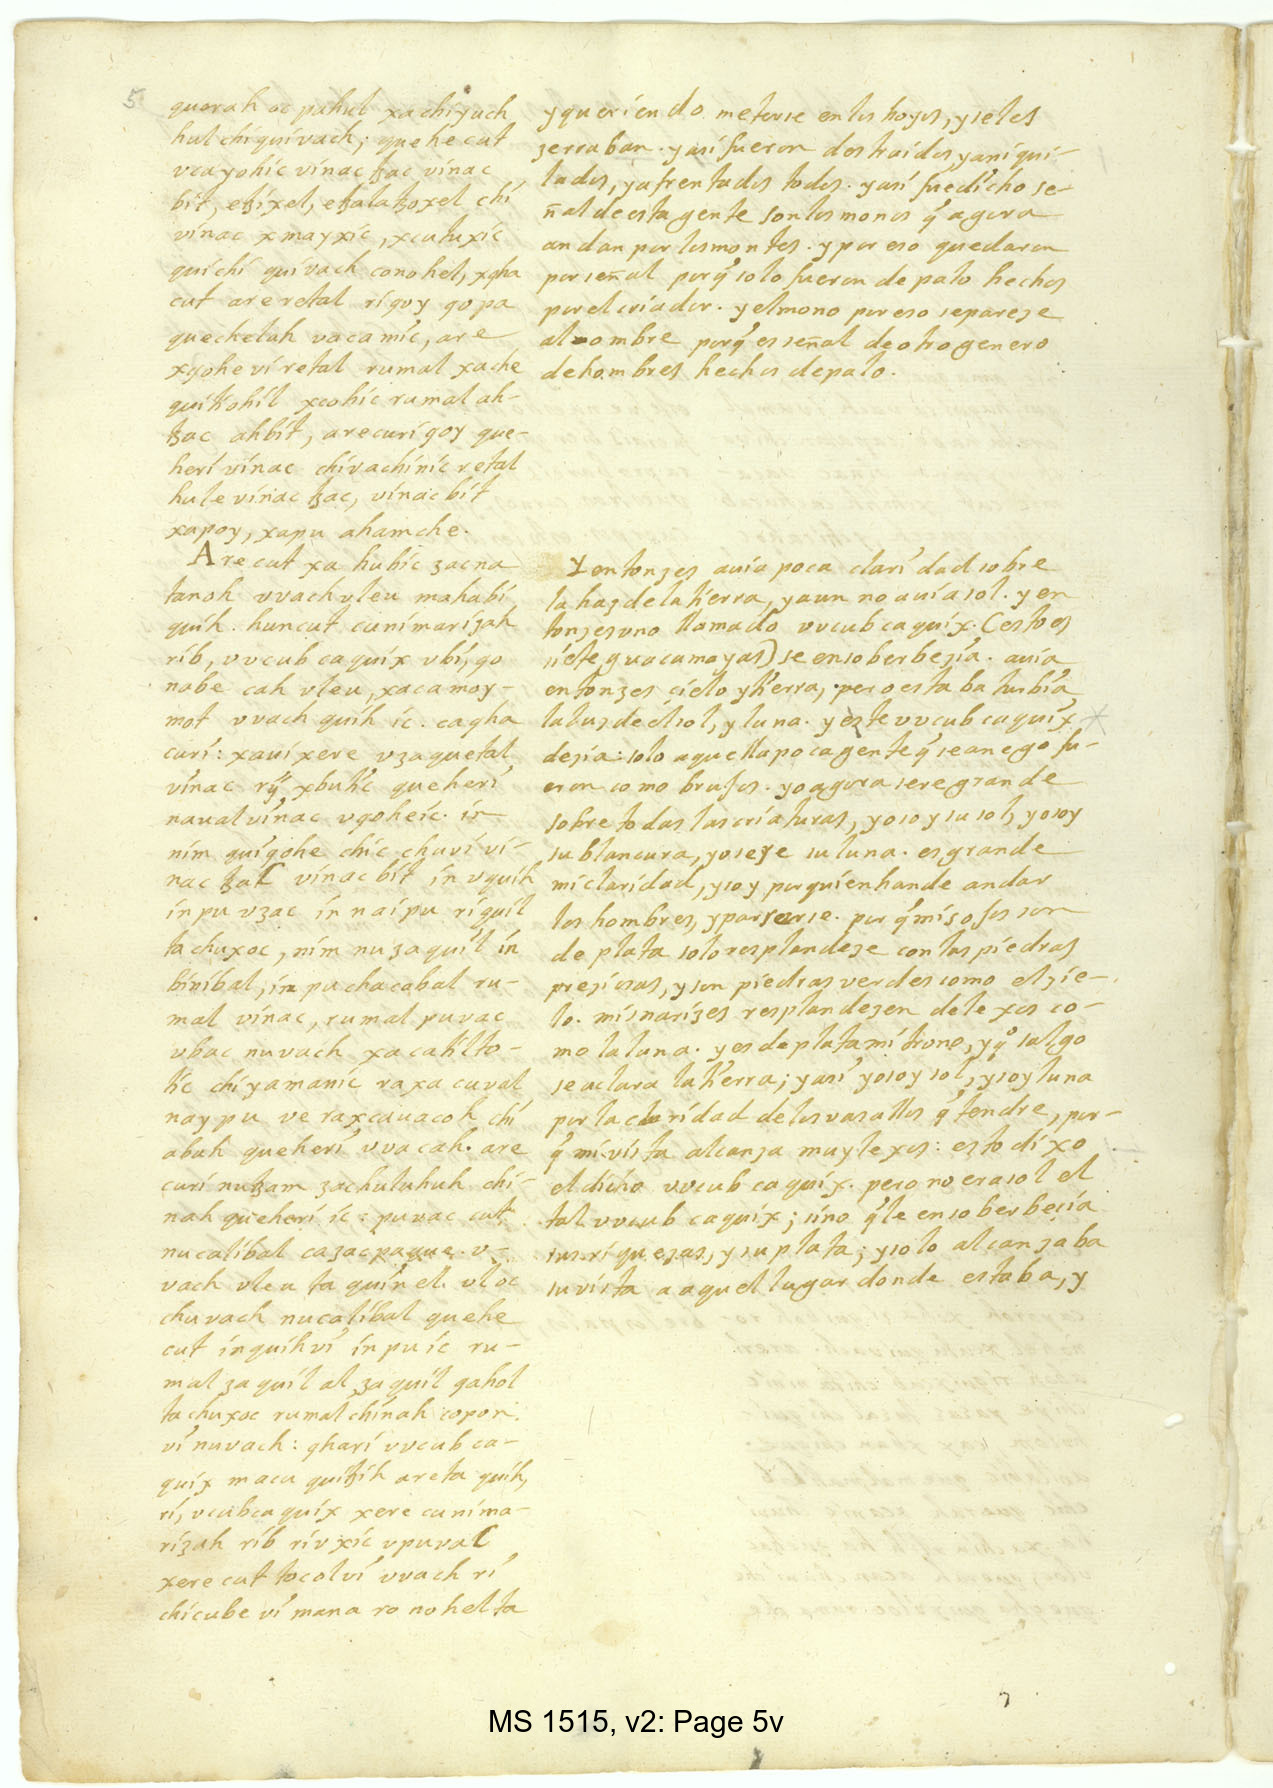 5
querah oc pahul xa chiyuch
hul chiquivach; quehe cut
vcayohic vinac tzac vinac
bit, etzixel, etzalatzoxel chi
vinac xmayxic, xcutuxic
quichi quivach conohel, xqha
cut are retal ri qoy qo pa
quechelah vacamic, are
xqohe vi retal rumal xache
quitiohil xcohic rumal ah-
tzac ahbit, are curi qoy que-
heri vinac chivachinic retal
hule vinac tzac, vinac bit
xa poy, xa pu ahamche.
Are cut xa hubic zacna
tanoh vvach vleu mahabi
quih. hun cut cunimarizah
rib, vvcub caquix vbi, qo
nabe cah vleu, xaca moy-
mot vvach quih ic. caqha
curi: xavixere vzaquetal
vinac rij xbutic queheri
naual vinac vqoheic. in
nim quiqohe chic chuvi vi-
nac tzac vinac bit in vquih
in pu vzac in nai pu riquil
tachuxoc, nim nuzaquil in
binibal, in pu chacabal ru-
mal vinac, rumal puvac
vbac nuvach xacatilto-
tic chi yamanic raxa cuval
naypu ve raxcauacoh chi
abah queheri vvacah. are
curi nutzam zachuluhuh chi-
nah queheri ic: puvac cut
nucalibal cazacpaque. v-
vach vleu ta quinel. vloc
chuvach nucalibal quehe
cut inquih vi in pu ic ru-
mal zaquil al zaquil qahol
tachuxoc rumal chinah copon.
vi nuvach: qhari vvcub ca-
quix macu quitzih areta quih,
ri, vcub caquix xere cunima-
rizah rib ri vxic vpuvac
xere cut tocol vi vvach ri
chicube vi mana ronohel ta
y queriendo meterse en los hoyos, y seles
zerraban. y asi fueron destruidos, y aniqui-
lados, y afrentados todos. y asi fue dicho se-
ñal de esta gente son los monos q̃ agora
andan por los montes. y por eso quedaron
por señal porq̃ solo fueron de palo hechos
por el criador. y el mono por eso se pareze
al ombre porq̃ es señal de otro genero
de hombres hechos de palo.
Y entonzes auia poca claridad sobre
la haz de la tierra, y aun no auia sol. y en
tonzes uno llamado vvcub caquix. (esto es
siete guacamayas) se ensoberbezia. auia
entonzes cielo y tierra, pero estaba turbia
la luz del sol, y luna. y este vvcub caquix
dezia: solo aquella poca gente q̃ se anego fu-
eron como brutos. yo agora sere grande
sobre todas las criaturas, yo soy su sol, yo soy
su blancura, yo sere su luna. es grande
mi claridad, y soy por quien han de andar
los hombres, y pararse. porq̃ mis ojos son
de plata solo resplandeze con las piedras
preziosas, y son piedras verdes como el zie-
lo. mis narizes resplandezen de lexos co-
mo la luna. y es de plata mi trono, y q̃ salgo
se aclara la tierra; y asi yo soy sol, y soy luna
por la claridad de los vasallos q̃ tendre, por-
q̃ mi vista alcanza muy lexos: esto dixo
el dicho vvcub caquix. pero no era sol el
tal vvcub caquix; sino q̃ le ensoberbesia
sus riquezas, y su plata; y solo alcanzaba
su vista a aquel lugar donde estaba, y
MS 1515, v2: Page 5v